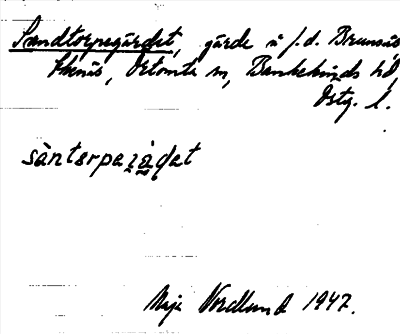 Sandtorpegärdet, gärde å f.d. Brunnäs,
Ekenäs, Örtomta sn, Bankekinds hd,
Östg. l.
sàntərpaʒàdət
Maja Nordlund 1947.